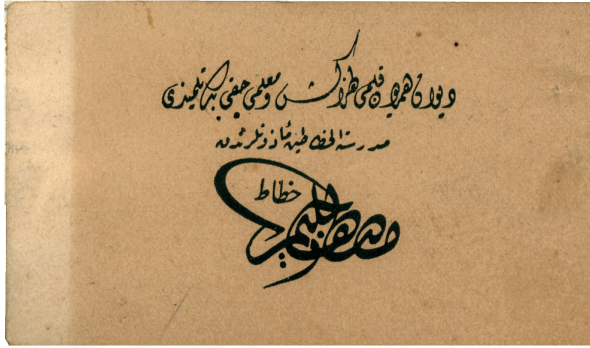 ديوان همايون قلمى طغراكش و معلمى حقى بك تلميذى
مدرسة الخطاطين مأذونلرندن
خطاط
مصطفى حليم